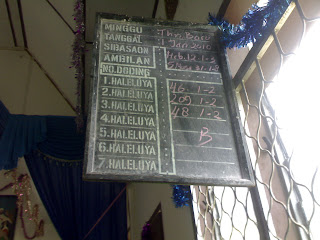 MINGGU : Thn Baru
TANGGAL : 1 Jan 2010
SIBASAON :
AMBILAN :
NO. DODING
1. HALELUYA 46 1-2
2. HALELUYA 209 1-2
3. HALELUYA 48 1-2
4. HALELUYA
5. HALELUYA
6. HALELUYA
7. HALELUYA